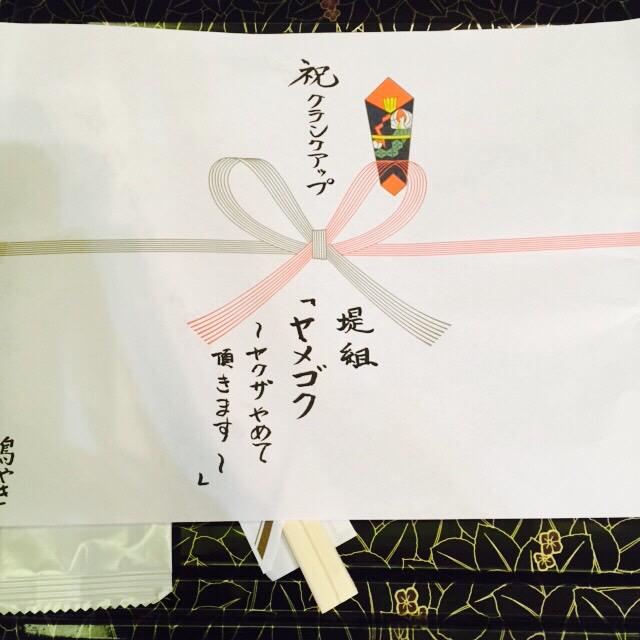 祝クランクアップ
堤組
「ヤメゴク
～ヤクザやめて
頂きます～」